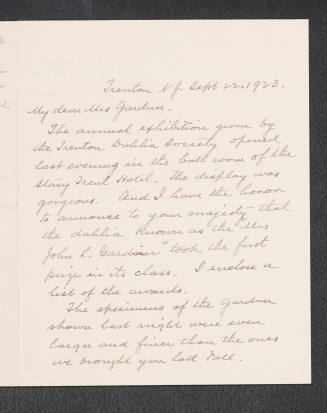 Trenton N.J. Sept 22, 1923.
My dear Mrs Gardner.
The annual exhibition given by
the Trenton Dahlia Society opened
last evening in the ball room of the
Stacy Trent Hotel. The display was
gorgeous. And I have the honor
to announce to your majesty that
the dahlia known as the "Mrs
John L. Gardner" took the first
prize in its class. I enclose a
list of the awards.
The specimens of the Gardner
shown last night were even
larger and finer than the ones
we brought you last Fall.